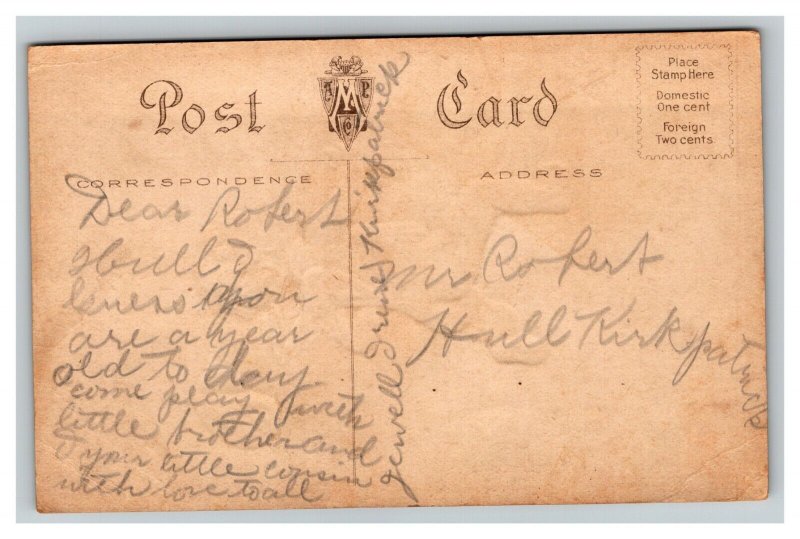 Post Card
A M P Co
Place
Stamp Here
Domestic
One cent
Foreign
Two cents
CORRESPONDENCE
ADDRESS
Dear Robert
Hull I
you
are a year
old to day
come play with
little brother and
your little cousin
with love to all
Jewell Kirkpatrick
Mr Robert
Hull Kirkpatrick